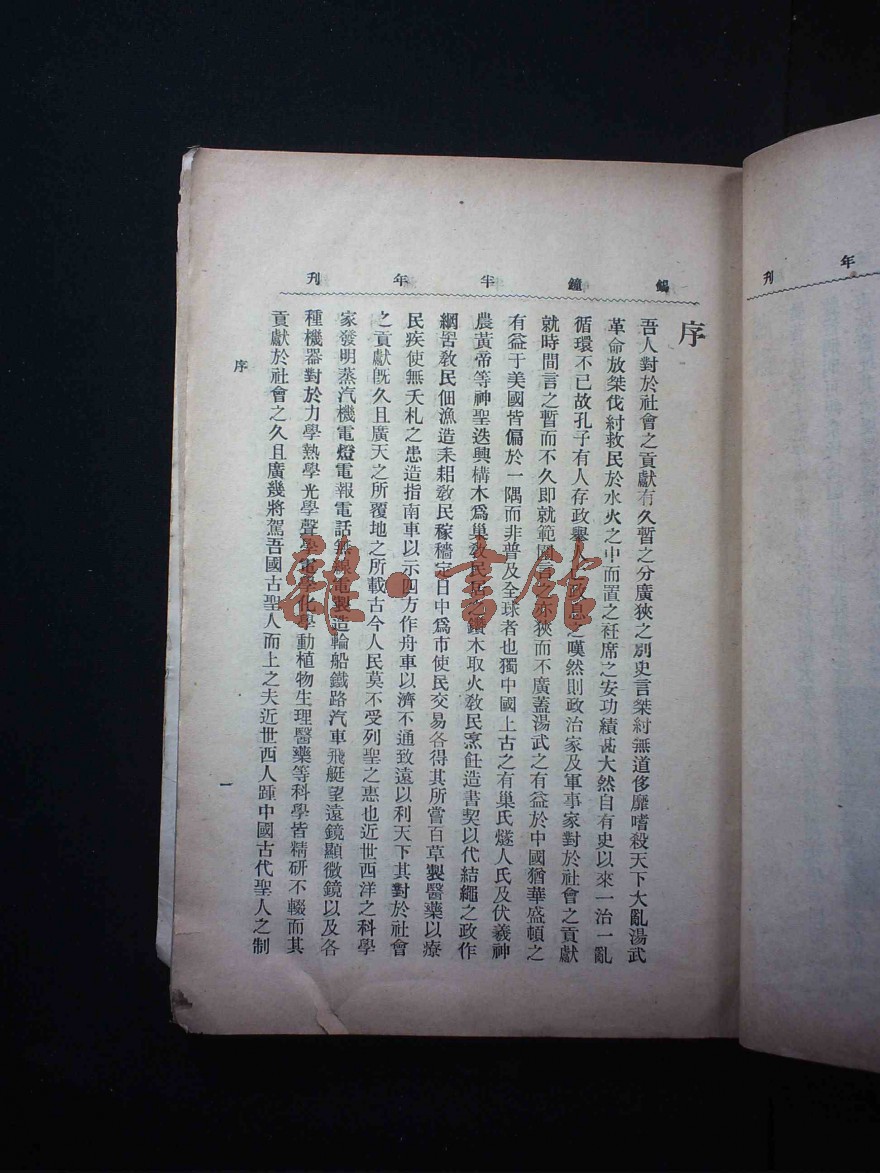 錫鐘半年刊
序
吾人對於社會之貢獻有久暫之分廣狹之別史言桀紂無道侈靡嗜殺天下大亂湯武
革命放桀伐紂救民於水火之中而置之衽席之安功績甚大然自有史以來一治一亂
循環不已故孔子有人存政舉人亡政息之嘆然則政治家及軍事家對於社會之貢獻
就時間言之暫而不久即就範圍言之亦狹而不廣蓋湯武之有益於中國猶華盛頓之
有益于美國皆偏於一隅而非普及全球者也獨中國上古之有巢氏燧人氏及伏羲神
農黃帝等神聖迭興構木爲巢敎民居之鑽木取火敎民烹飪造書契以代結繩之政作
網罟敎民佃漁造耒耜敎民稼穡定日中爲市使民交易各得其所嘗百草製醫藥以療
民疾使無夭札之患造指南車以示四方作舟車以濟不通致遠以利天下其對於社會
之貢獻旣久且廣天之所覆地之所載古今人民莫不受列聖之惠也近世西洋之科學
家發明蒸汽機電燈電報電話無線電製造輪船鐵路汽車飛艇望遠鏡顯微鏡以及各
種機器對於力學熱學光學聲學電學化學動植物生理醫藥等科學皆精研不輟而其
貢獻於社會之久且廣幾將駕吾國古聖人而上之夫近世西人踵中國古代聖人之制
序
一
年刊
雜·書館